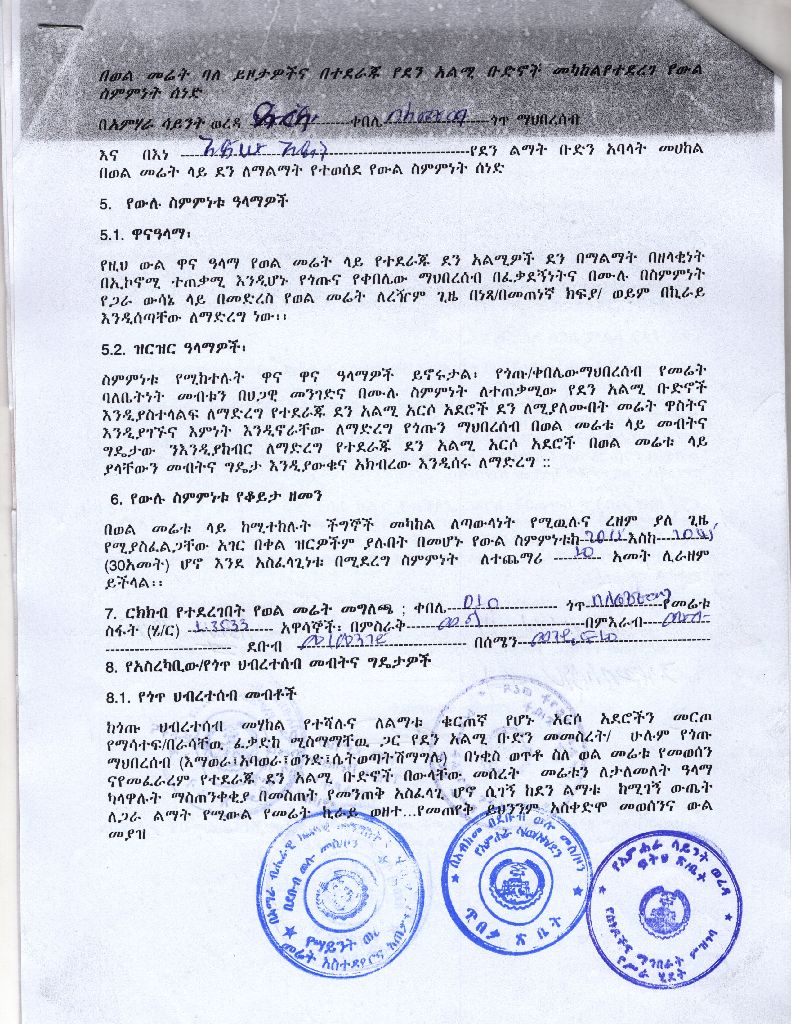 በወል መሬት ባለ ይዞታዎችና በተደራጁ የደን አልሚ ቡድኖች መካከልየተደረገ የውል
ስምምነት ሰነድ
በአምሃራ ሳይንት ወረዳ ---------ቀበሌ ------------ጎጥ ማህበረሰብ
እና በእነ ----------------------------------የደን ልማት ቡድን አባላት መሀከል
በወል መሬት ላይ ደን ለማልማት የተወሰደ የውል ስምምነት ሰነድ
5. የውሉ ስምምነቱ ዓላማዎች
5.1. ዋናዓላማ፡
የዚህ ውል ዋና ዓላማ የወል መሬት ላይ የተደራጁ ደን አልሚዎች ደን በማልማት በዘላቂነት
በኢኮኖሚ ተጠቃሚ እንዲሆኑ የጎጡና የቀበሌው ማህበረሰብ በፈቃደኝነትና በሙሉ በስምምነት
የጋራ ውሳኔ ላይ በመድረስ የወል መሬት ለረዥም ጊዜ በነጻ/በመጠነኛ ክፍያ/ ወይም በኪራይ
እንዲሰጣቸው ለማድረግ ነው፡፡
5.2. ዝርዝር ዓላማዎች፡
ስምምነቱ የሚከተሉት ዋና ዋና ዓላማዎች ይኖሩታል፡ የጎጡ/ቀበሌውማህበረሰብ የመሬት
ባለቤትነት መብቱን በህጋዊ መንገድና በሙሉ ስምምነት ለተጠቃሚው የደን አልሚ ቡድኖች
እንዲያስተላልፍ ለማድረግ የተደራጁ ደን አልሚ አርሶ አደሮች ደን ለሚያለሙበት መሬት ዋስትና
እንዲያገኙና እምነት እንዲኖራቸው ለማድረግ የጎጡን ማህበረሰብ በወል መሬቱ ላይ መብትና
ግዴታው ንእንዲያከብር ለማድረግ የተደራጁ ደን አልሚ አርሶ አደሮች በወል መሬቱ ላይ
ያላቸውን መብትና ግዴታ እንዲያውቁና አክብረው እንዲሰሩ ለማድረግ ::
6. የውሉ ስምምነቱ የቆይታ ዘመን
በወል መሬቱ ላይ ከሚተከሉት ችግኞች መካከል ለጣውላነት የሚዉሉና ረዘም ያለ ጊዜ
የሚያስፈልጋቸው አገር በቀል ዝርዎችም ያሉበት በመሆኑ የውል ስምምነቱከ--------እስከ--------
(30አመት) ሆኖ እንደ አስፈላጊነቱ በሚደረግ ስምምነት ለተጨማሪ --10-- አመት ሊራዘም
ይችላል፡፡
7. ርክክብ የተደረገበት የወል መሬት መግለጫ ; ቀበሌ--010-- ጎጥ ----------የመሬቱ
ስፋት (ሄ/ር) --1.3533-- አዋሳኞች፡ በምስራቅ----------------------በምእራብ--------
---------------- ደቡብ ---------------------- በሰሜን----------------------
8. የአስረካቢው/የጎጥ ህብረተሰብ መብትና ግዴታዎች
8.1. የጎጥ ህብረተሰብ መብቶች
ከጎጡ ህብረተሰብ መሃከል የተሻሉና ለልማቱ ቁርጠኛ የሆኑ አርሶ አደሮችን መርጦ
የማሳተፍ/በራሳቸዉ ፈቃድከ ሚስማማቸዉ ጋር የደን አልሚ ቡድን መመስረት/ ሁሉም የጎጡ
ማህበረሰብ (እማወራ፤አባወራ፤ወንድ፤ሴትወጣትሽማግሌ) በነቂስ ወጥቶ ስለ ወል መሬቱ የመወሰን
ናየመፈራረም የተደራጁ ደን አልሚ ቡድኖች በውላቸው መሰረት መሬቱን ለታለመለት ዓላማ
ካላዋሉት ማስጠንቀቂያ በመስጠት የመንጠቅ አስፈላጊ ሆኖ ሲገኝ ከደን ልማቱ ከሚገኝ ውጤት
ለጋራ ልማት የሚውል የመሬት ኪራይ ወዘተ...የመጠየቅ ይህንንም አስቀድሞ መወሰንና ውል
መያዝ
በደቡብ ወሎ መስ/ዞን
መሬት አስተዳደርና
በደቡብ ወሎ መስ/ዞን
ጥበቃ ጽ ቤት
የአምሐራ ሳይንት ወረዳ
ፍትህ ጽ/ቤት
የሥራ ሂደት